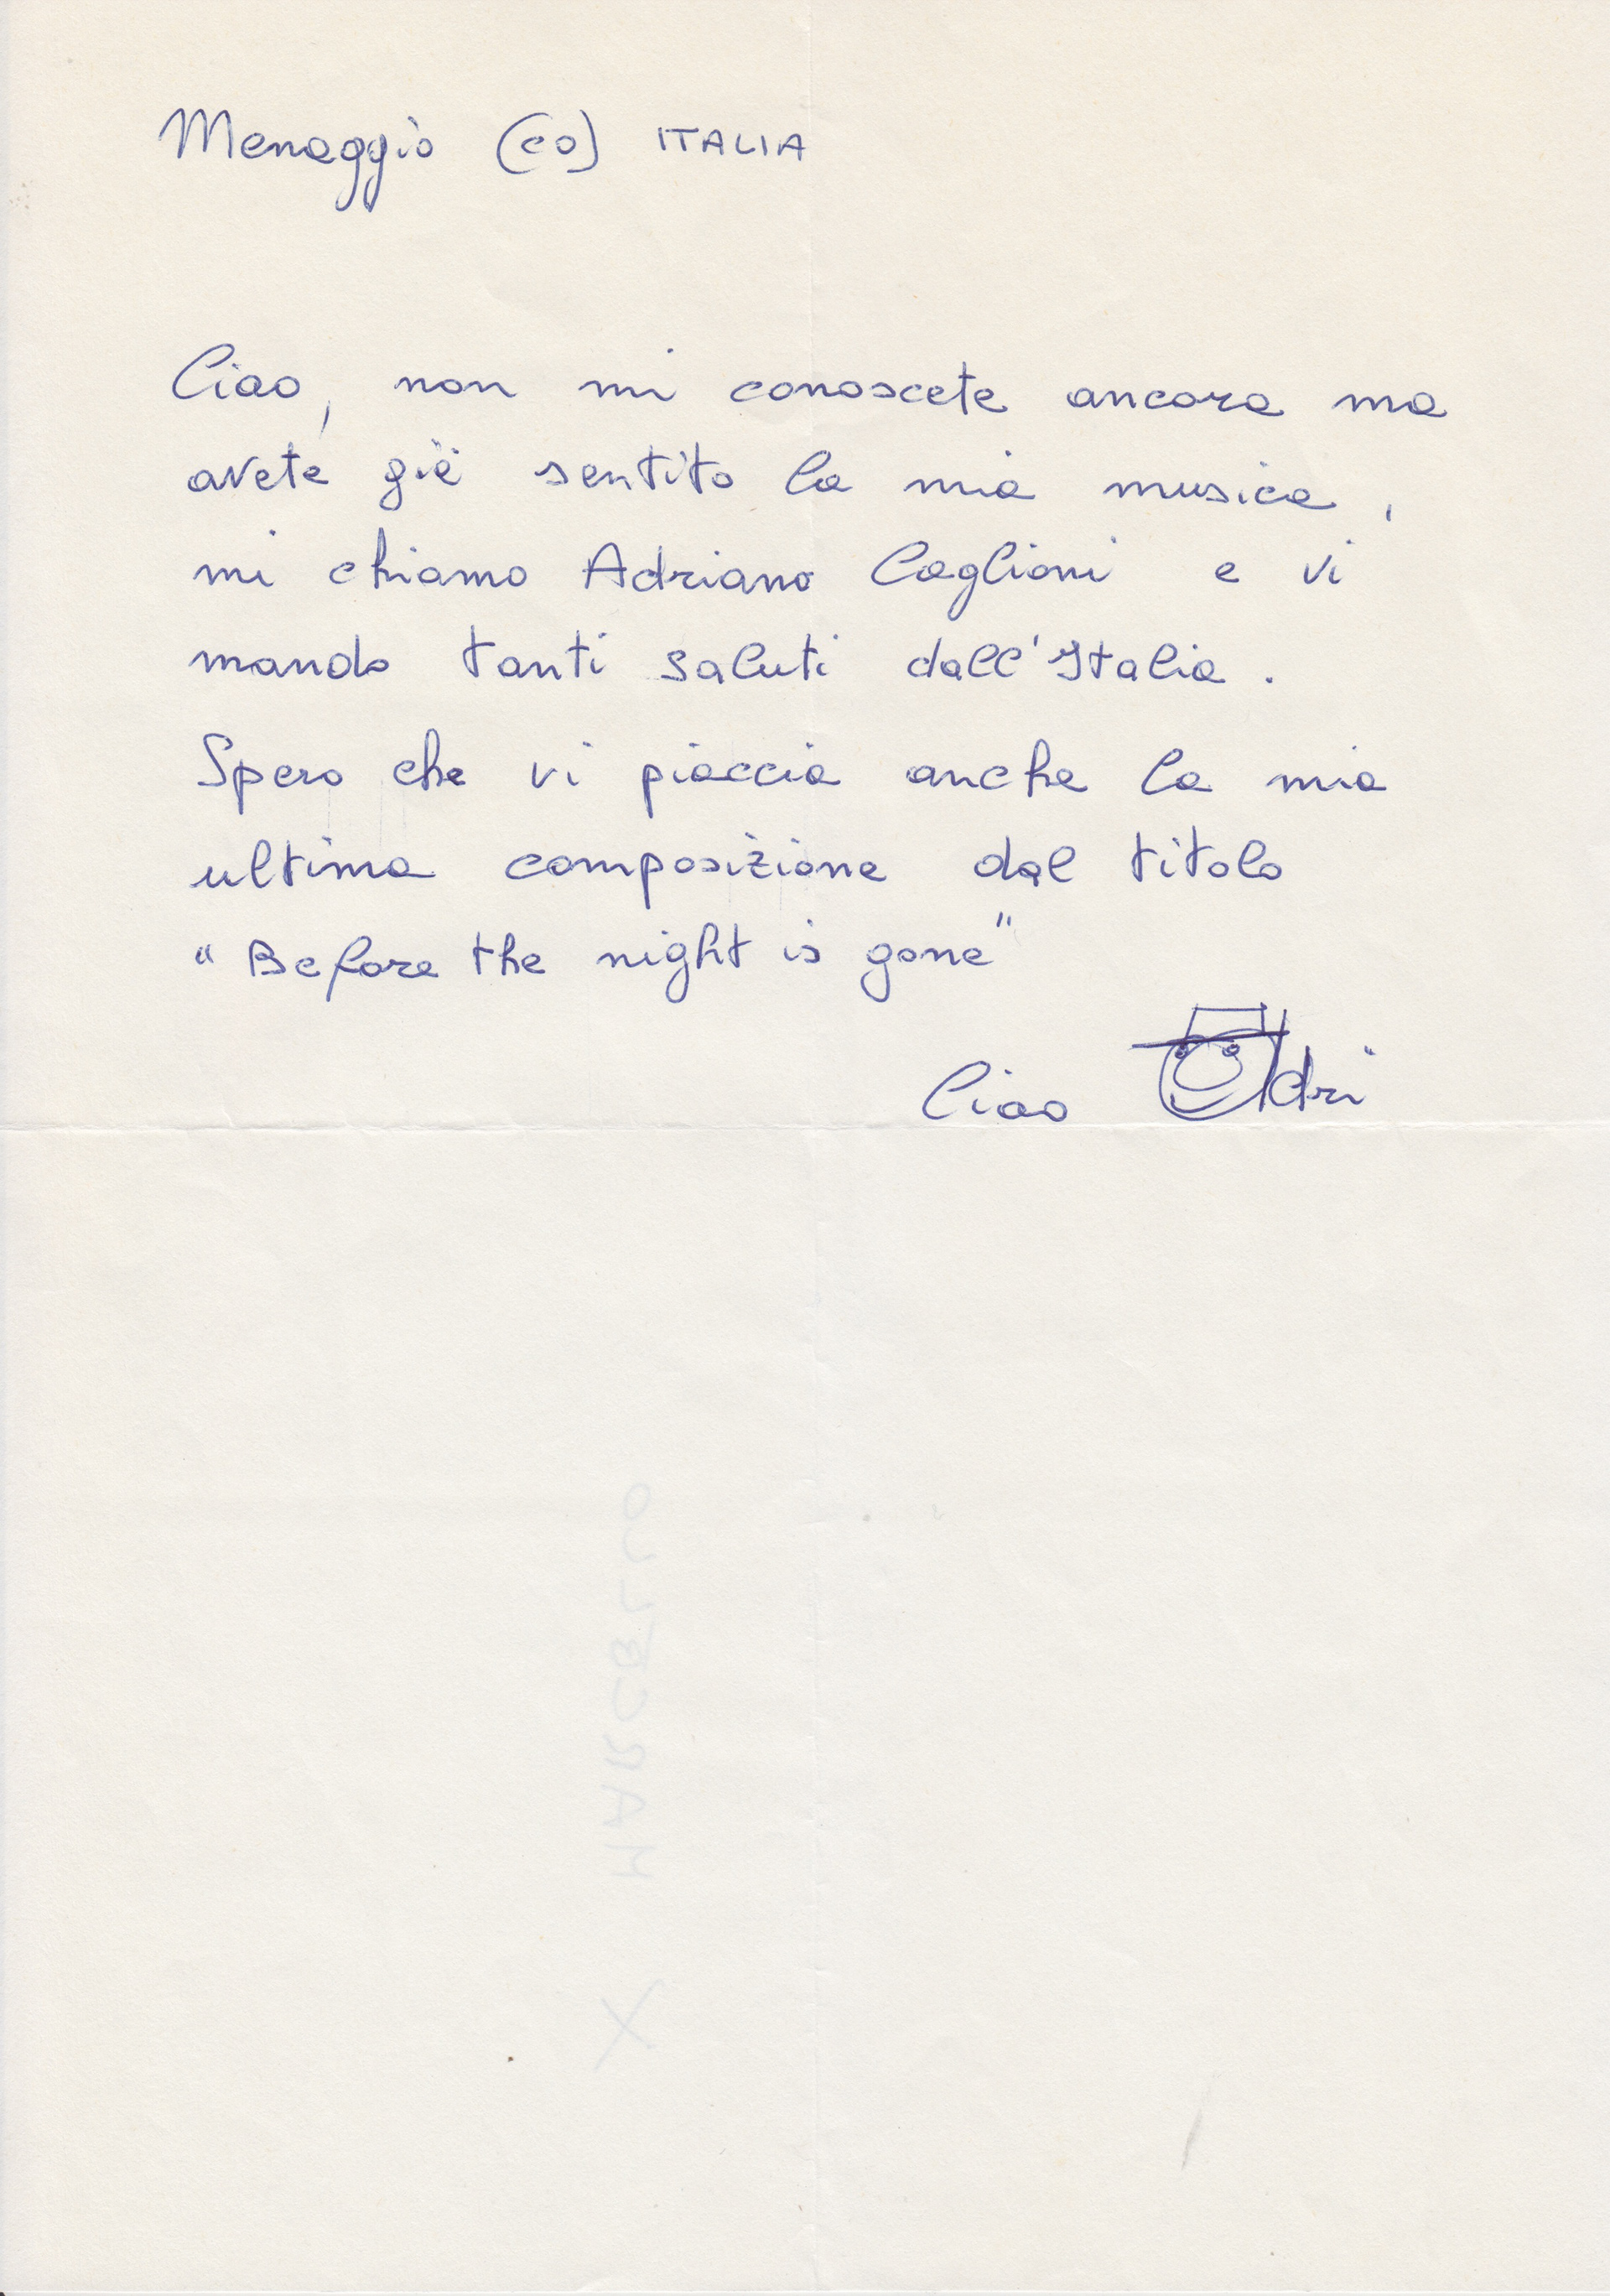 Menaggio (CO) ITALIA
Ciao, non mi conoscete ancora ma
avete già sentito la mia musica,
mi chiamo Adriano Caglioni e vi
mando tanti saluti dall'Italia.
Spero che vi piaccia anche la mia
ultima composizione dal titolo
"Before the night is gone"
Ciao Adri
X MARCELLO